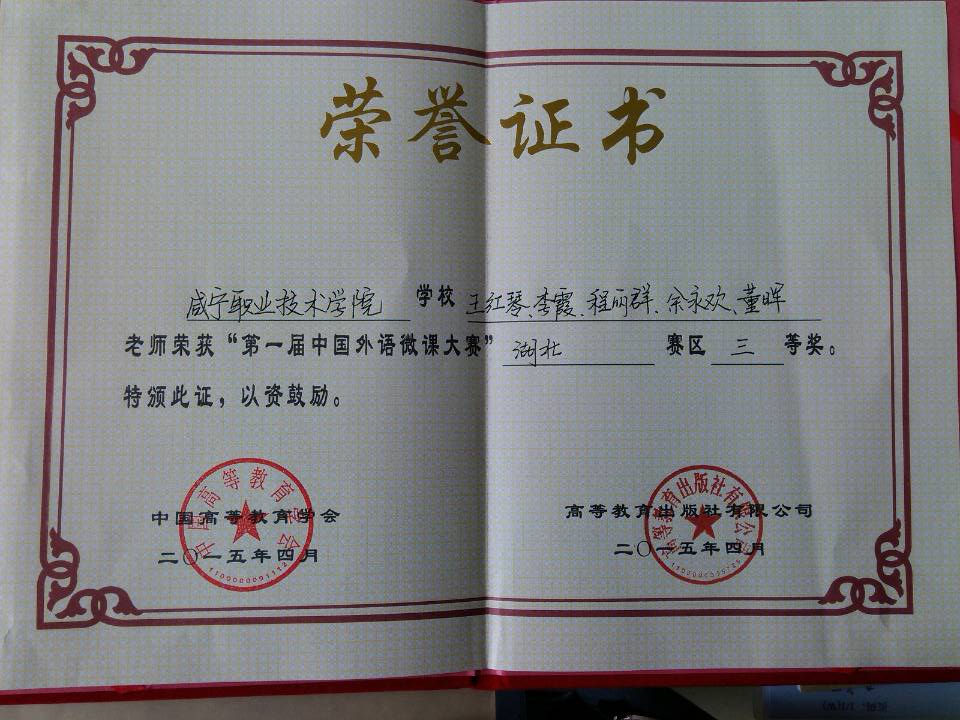 荣誉证书
咸宁职业技术学院 学校 王红琴、李霞、程丽群、余永欢、董晖
老师荣获“第一届中国外语微课大赛” 湖北 赛区 三 等奖。
特颁此证，以资鼓励。
中国高等教育学会
二〇一五年四月
中国高等教育学会
高等教育出版社有限公司
二〇一五年四月
高等教育出版社有限公司